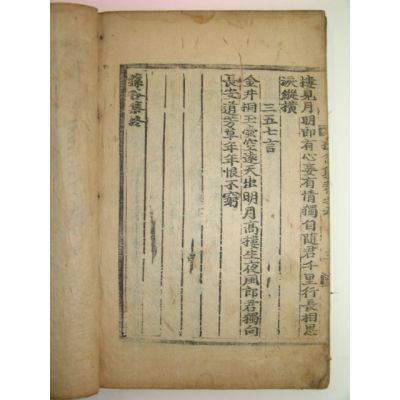 樓見月明郎有心妾有情獨自隨君千里行長相思
淚縱橫
三五七言
金井桐玉露空遠天出明月高樓生夜風郎君獨向
長安道芳草年年恨不窮
集終